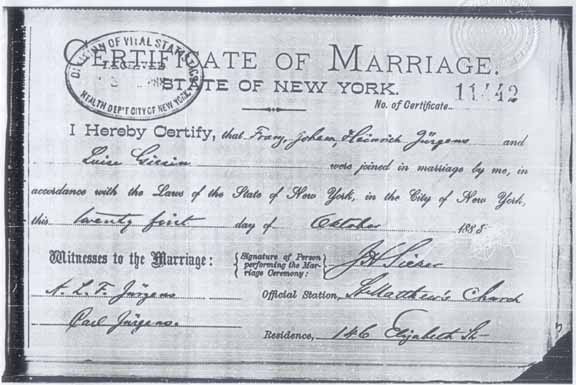 CERTIFICATE OF MARRIAGE.
DIVISION OF VITAL STATISTICS
HEALTH DEP'T CITY OF NEW YORK
STATE OF NEW YORK.
No. of Certificate 11442
I Hereby Certify, that Franz Johann Heinrich Jürgens and
Luise were joined in marriage by me, in
accordance with the Laws of the State of New York, in the City of New York,
this twenty first day of October 1888
Witnesses to the Marriage:
Signature of Person
performing the Mar-
riage Ceremony:
A. L. F. Jürgens
Official Station, St. Matthew's Church
Carl Jürgens.
Residence, 146 Elizabeth St